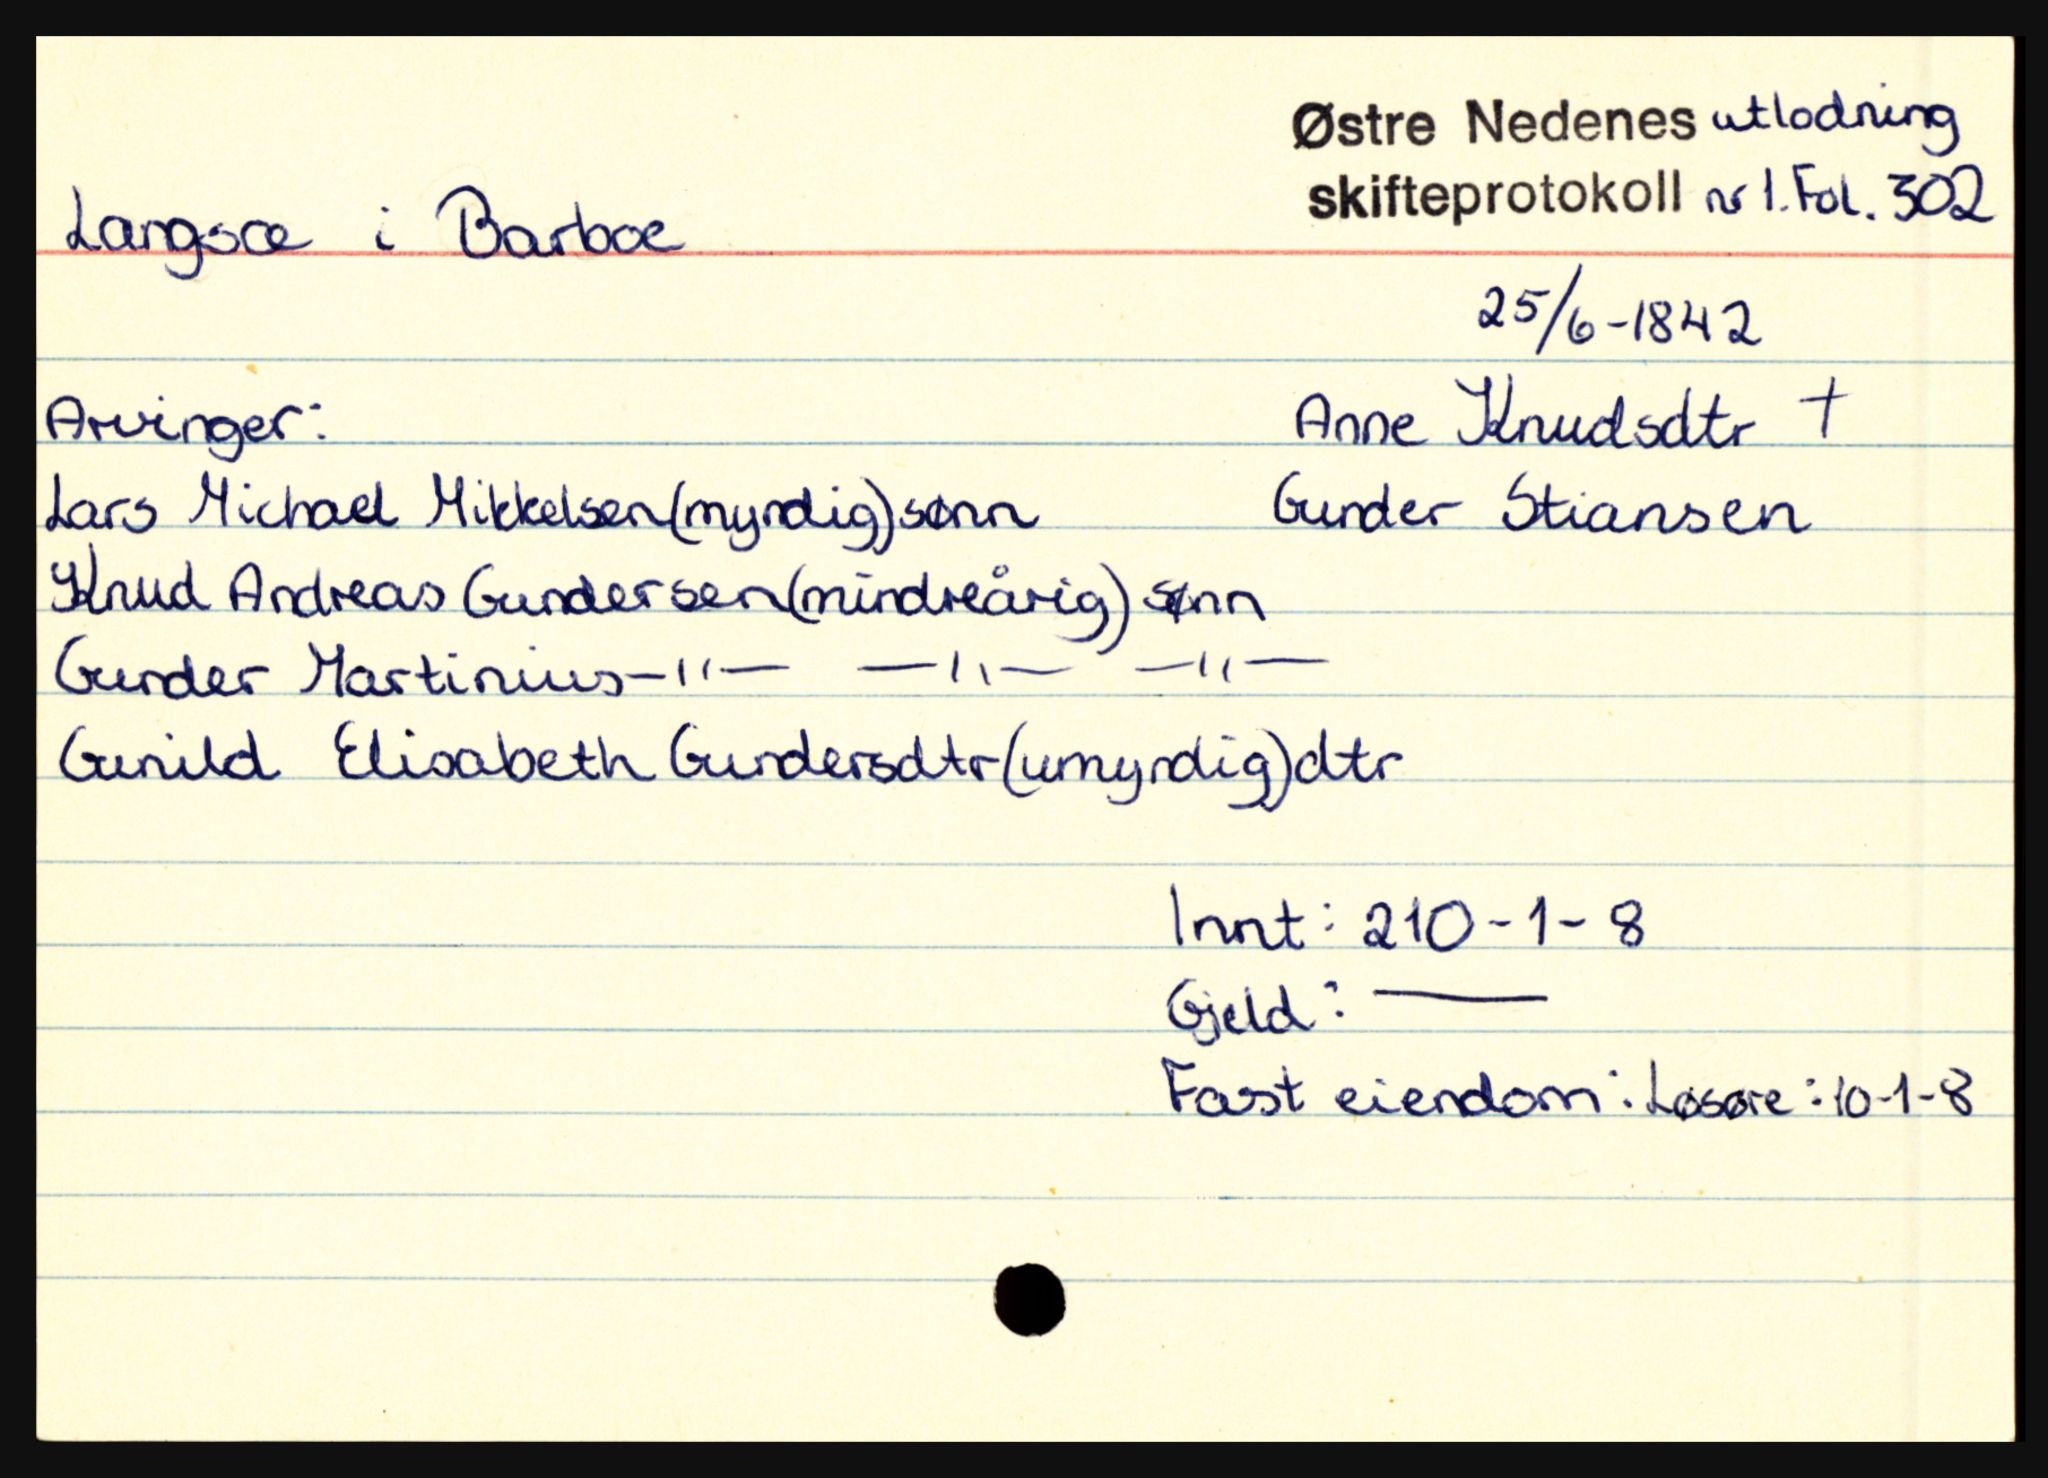 Østre Nedenes utlodning
skifteprotokoll nr 1. Fol. 302
Langsæ i Barboe
25/6-1842
Arvinger:
Anne Knudsdtr †
Lars Michael Mikkelsen (myndig) sønn
Gunder Stiansen
Knud Andreas Gundersen (mindreårig) sønn
Gunder Martinius —"— —"— —"—
Gunild Elisabeth Gundersdtr (umyndig) dtr
Innt: 210-1-8
Gjeld: —
Fast eiendom: Løsøre: 10-1-8